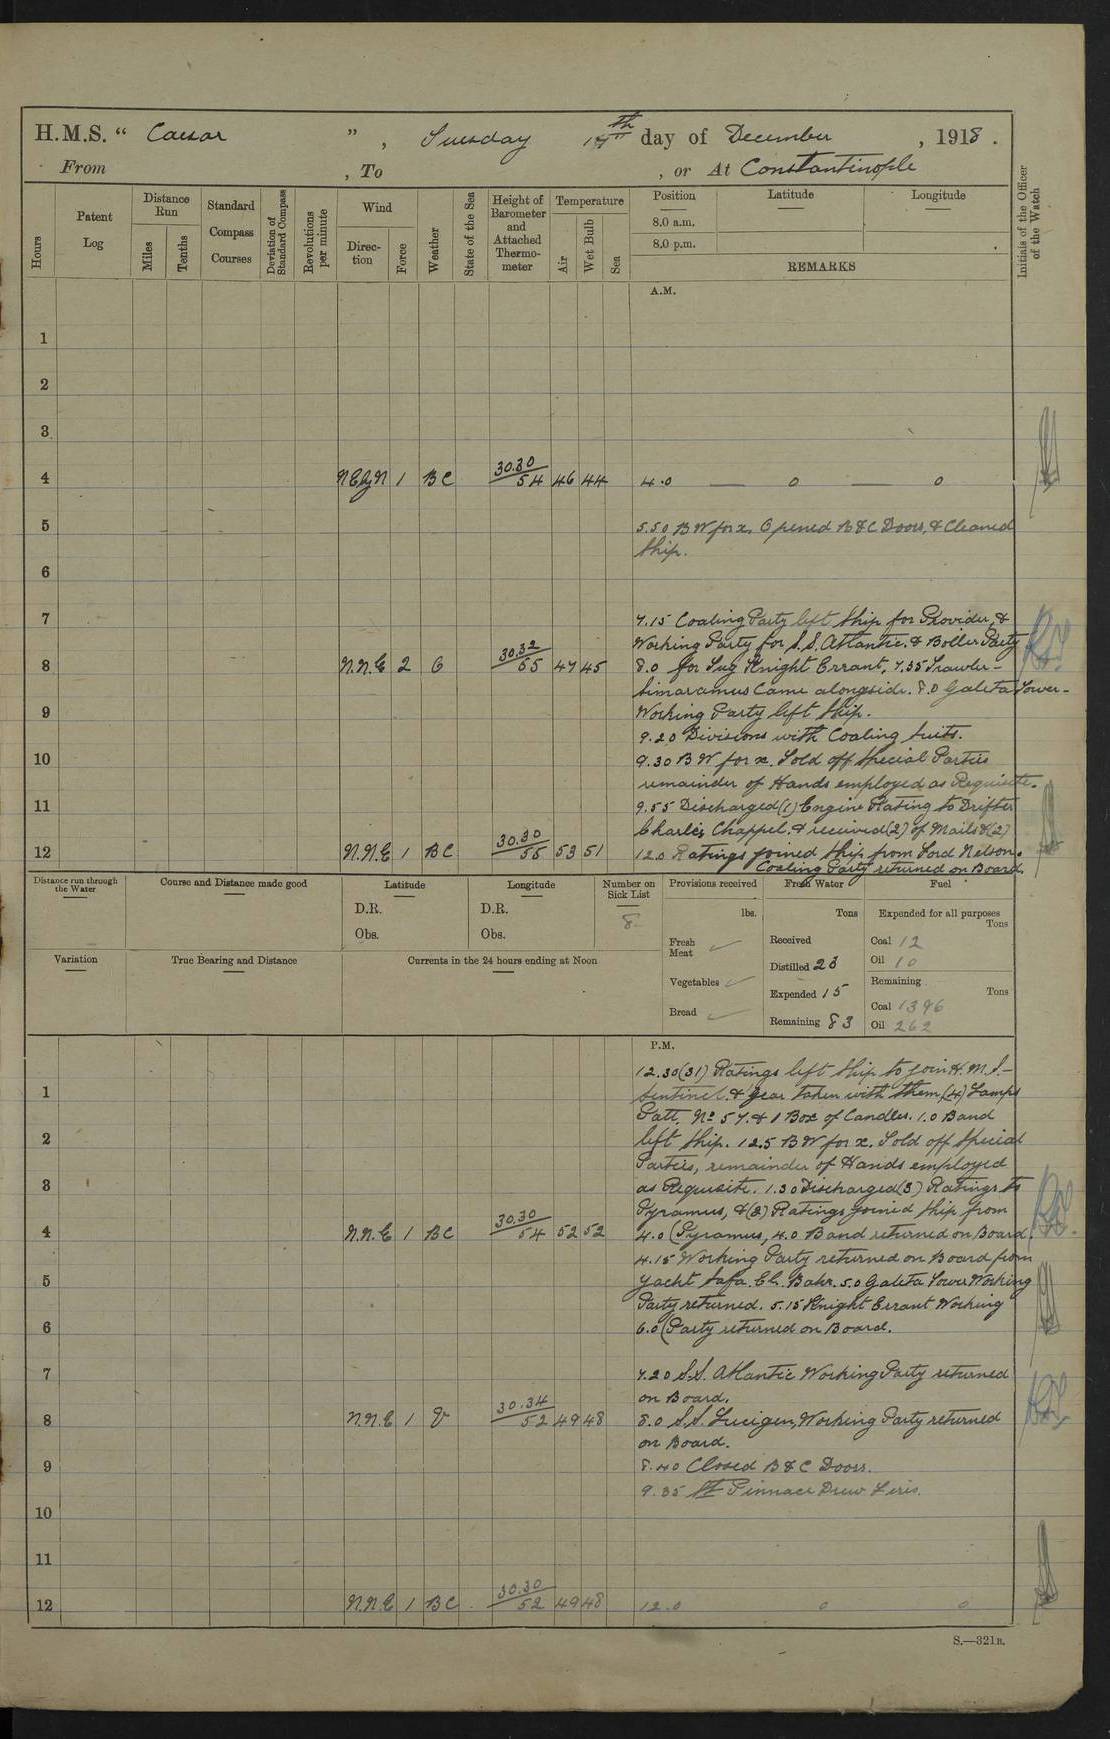 H.M.S. " Caesar " , Tuesday 17th day of December , 1918 .
From , To , or At Constantinople
Hours
Patent Log
Distance Run
Miles
Tenths
Standard Compass Courses
Deviation of Standard Compass
Revolutions per minute
Wind
Direc-tion
Force
Weather
State of the Sea
Height of Barometer and Attached Thermo-meter
Temperature
Air
Wet Bulb
Sea
Position Latitude Longitude
8.0 a.m.
8.0 p.m.
REMARKS
Initials of the Officer of the Watch
A.M.
1
2
3
4 NEbyN 1 BC 30.30/54 46 44 4.0 — 0 — 0
5 5.50 BW for x. Opened B & C Doors, & Cleaned
Ship.
6
7 7.15 Coaling Party left Ship for Provider, &
Working Party for S.S. Atlantic. & Boiler Party
8 N.N.E 2 C 30.32/55 47 45 8.0 for Tug Knight Errant. 7.35 Trawler-
Simaramus Came alongside. 8.0 Galeta Tower-
9 Working Party left Ship.
9.20 Divisions with Coaling Suits.
10 9.30 BW for x. Told off Special Parties
remainder of Hands employed as Requisite.
11 9.55 Discharged (1) Engine Rating to Drifter
Charles Chappel, & received (2) of Mails & (2)
12 N.N.E 1 BC 30.30/55 53 51 12.0 Ratings joined Ship from Lord Nelson.
Coaling Party returned on Board.
Distance run through the Water
Course and Distance made good
Latitude
D.R.
Obs.
Longitude
D.R.
Obs.
Number on Sick List
8
Provisions received
lbs.
Fresh Meat ✓
Vegetables ✓
Bread ✓
Fresh Water
Tons
Received
Distilled 23
Expended 15
Remaining 83
Fuel
Expended for all purposes
Tons
Coal 12
Oil 10
Remaining
Tons
Coal 1396
Oil 262
Variation
True Bearing and Distance
Currents in the 24 hours ending at Noon
P.M.
12.30 (31) Ratings left Ship to join H.M.S.-
1 Sentinel. & Gear taken with them, (4) Lamps
Patt. No 57. & 1 Box of Candles. 1.0 Band
2 left Ship. 12.5 BW for x. Told off Special
Parties, remainder of Hands employed
3 as Requisite. 1.30 Discharged (3) Ratings to
Pyramus, & (3) Ratings joined Ship from
4 N.N.E 1 BC 30.30/54 52 52 4.0 (Pyramus, 4.0 Band returned on Board.
4.15 Working Party returned on Board from
5 Yacht Safa. El. Bahr. 5.0 Galeta Tower Working
Party returned. 5.15 Knight Errant Working
6 6.0 (Party returned on Board.
7 7.20 S.S. Atlantic Working Party returned
on Board.
8 N.N.E 1 30.34/52 49 48 8.0 S.S. Lucigen, Working Party returned
on Board.
9 8.40 Closed B & C Doors.
9.35 St Pinnace Drew Fires.
10
11
12 N.N.E 1 BC 30.30/52 49 48 12.0 0 0
S.—321B.